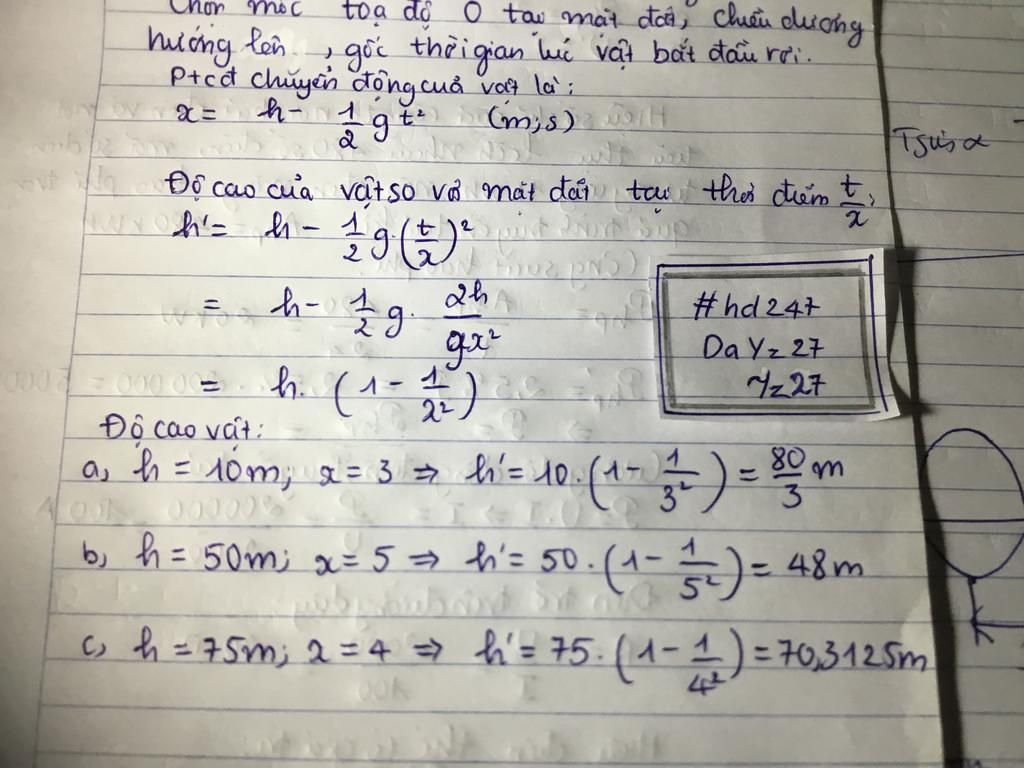 Chọn mốc toạ độ O tại mặt đất, chiều dương
hướng lên, gốc thời gian lúc vật bắt đầu rơi.
Ptcđ chuyển động của vật là:
x = h - 1/2 g t² (m;s)
Độ cao của vật so với mặt đất tại thời điểm t/x:
h' = h - 1/2 g.(t/x)²
= h - 1/2 g. 2h/gx²
= h. (1 - 1/x²)
#hd247
DaYz27
Yz27
Độ cao vật:
a, h = 10m; x = 3 ⇒ h' = 10.(1 - 1/3²) = 80/3 m
b, h = 50m; x = 5 ⇒ h' = 50.(1 - 1/5²) = 48m
c, h = 75m; x = 4 ⇒ h' = 75.(1 - 1/4²) = 70,3125m
Tsinα